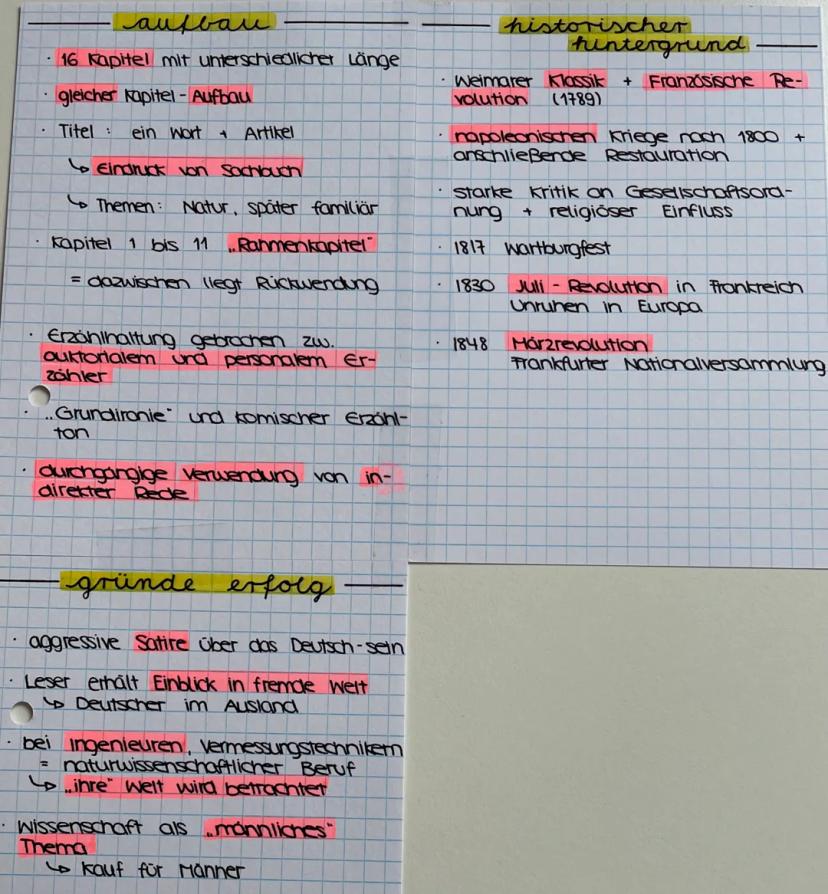 aufbau
· 16 Kapitel mit unterschiedlicher Länge
· gleicher Kapitel-Aufbau
· Titel: ein Wort + Artikel
↳ Eindruck von Sachbuch
↳ Themen: Natur, später familiär
· Kapitel 1 bis 11 „Rahmenkapitel"
= dazwischen liegt Rückwendung
· Erzählhaltung gebrochen zw.
auktorialem und personalem Er-
zähler
· „Grundironie" und komischer Erzähl-
ton
· durchgängige Verwendung von in-
direkter Rede
historischer
hintergrund
· Weimarer Klassik + Französische Re-
volution (1789)
· napoleonischen Kriege nach 1800 +
anschließende Restauration
· starke Kritik an Gesellschaftsord-
nung + religiöser Einfluss
· 1817 Wartburgfest
· 1830 Juli-Revolution in Frankreich
Unruhen in Europa
· 1848 Märzrevolution
Frankfurter Nationalversammlung
gründe erfolg
· aggressive Satire über das Deutsch-sein
· Leser erhält Einblick in fremde Welt
↳ Deutscher im Ausland
· bei Ingenieuren, Vermessungstechnikern
= naturwissenschaftlicher Beruf
↳ „ihre" Welt wird betrachtet
· Wissenschaft als „männliches"
Thema
↳ Kauf für Männer